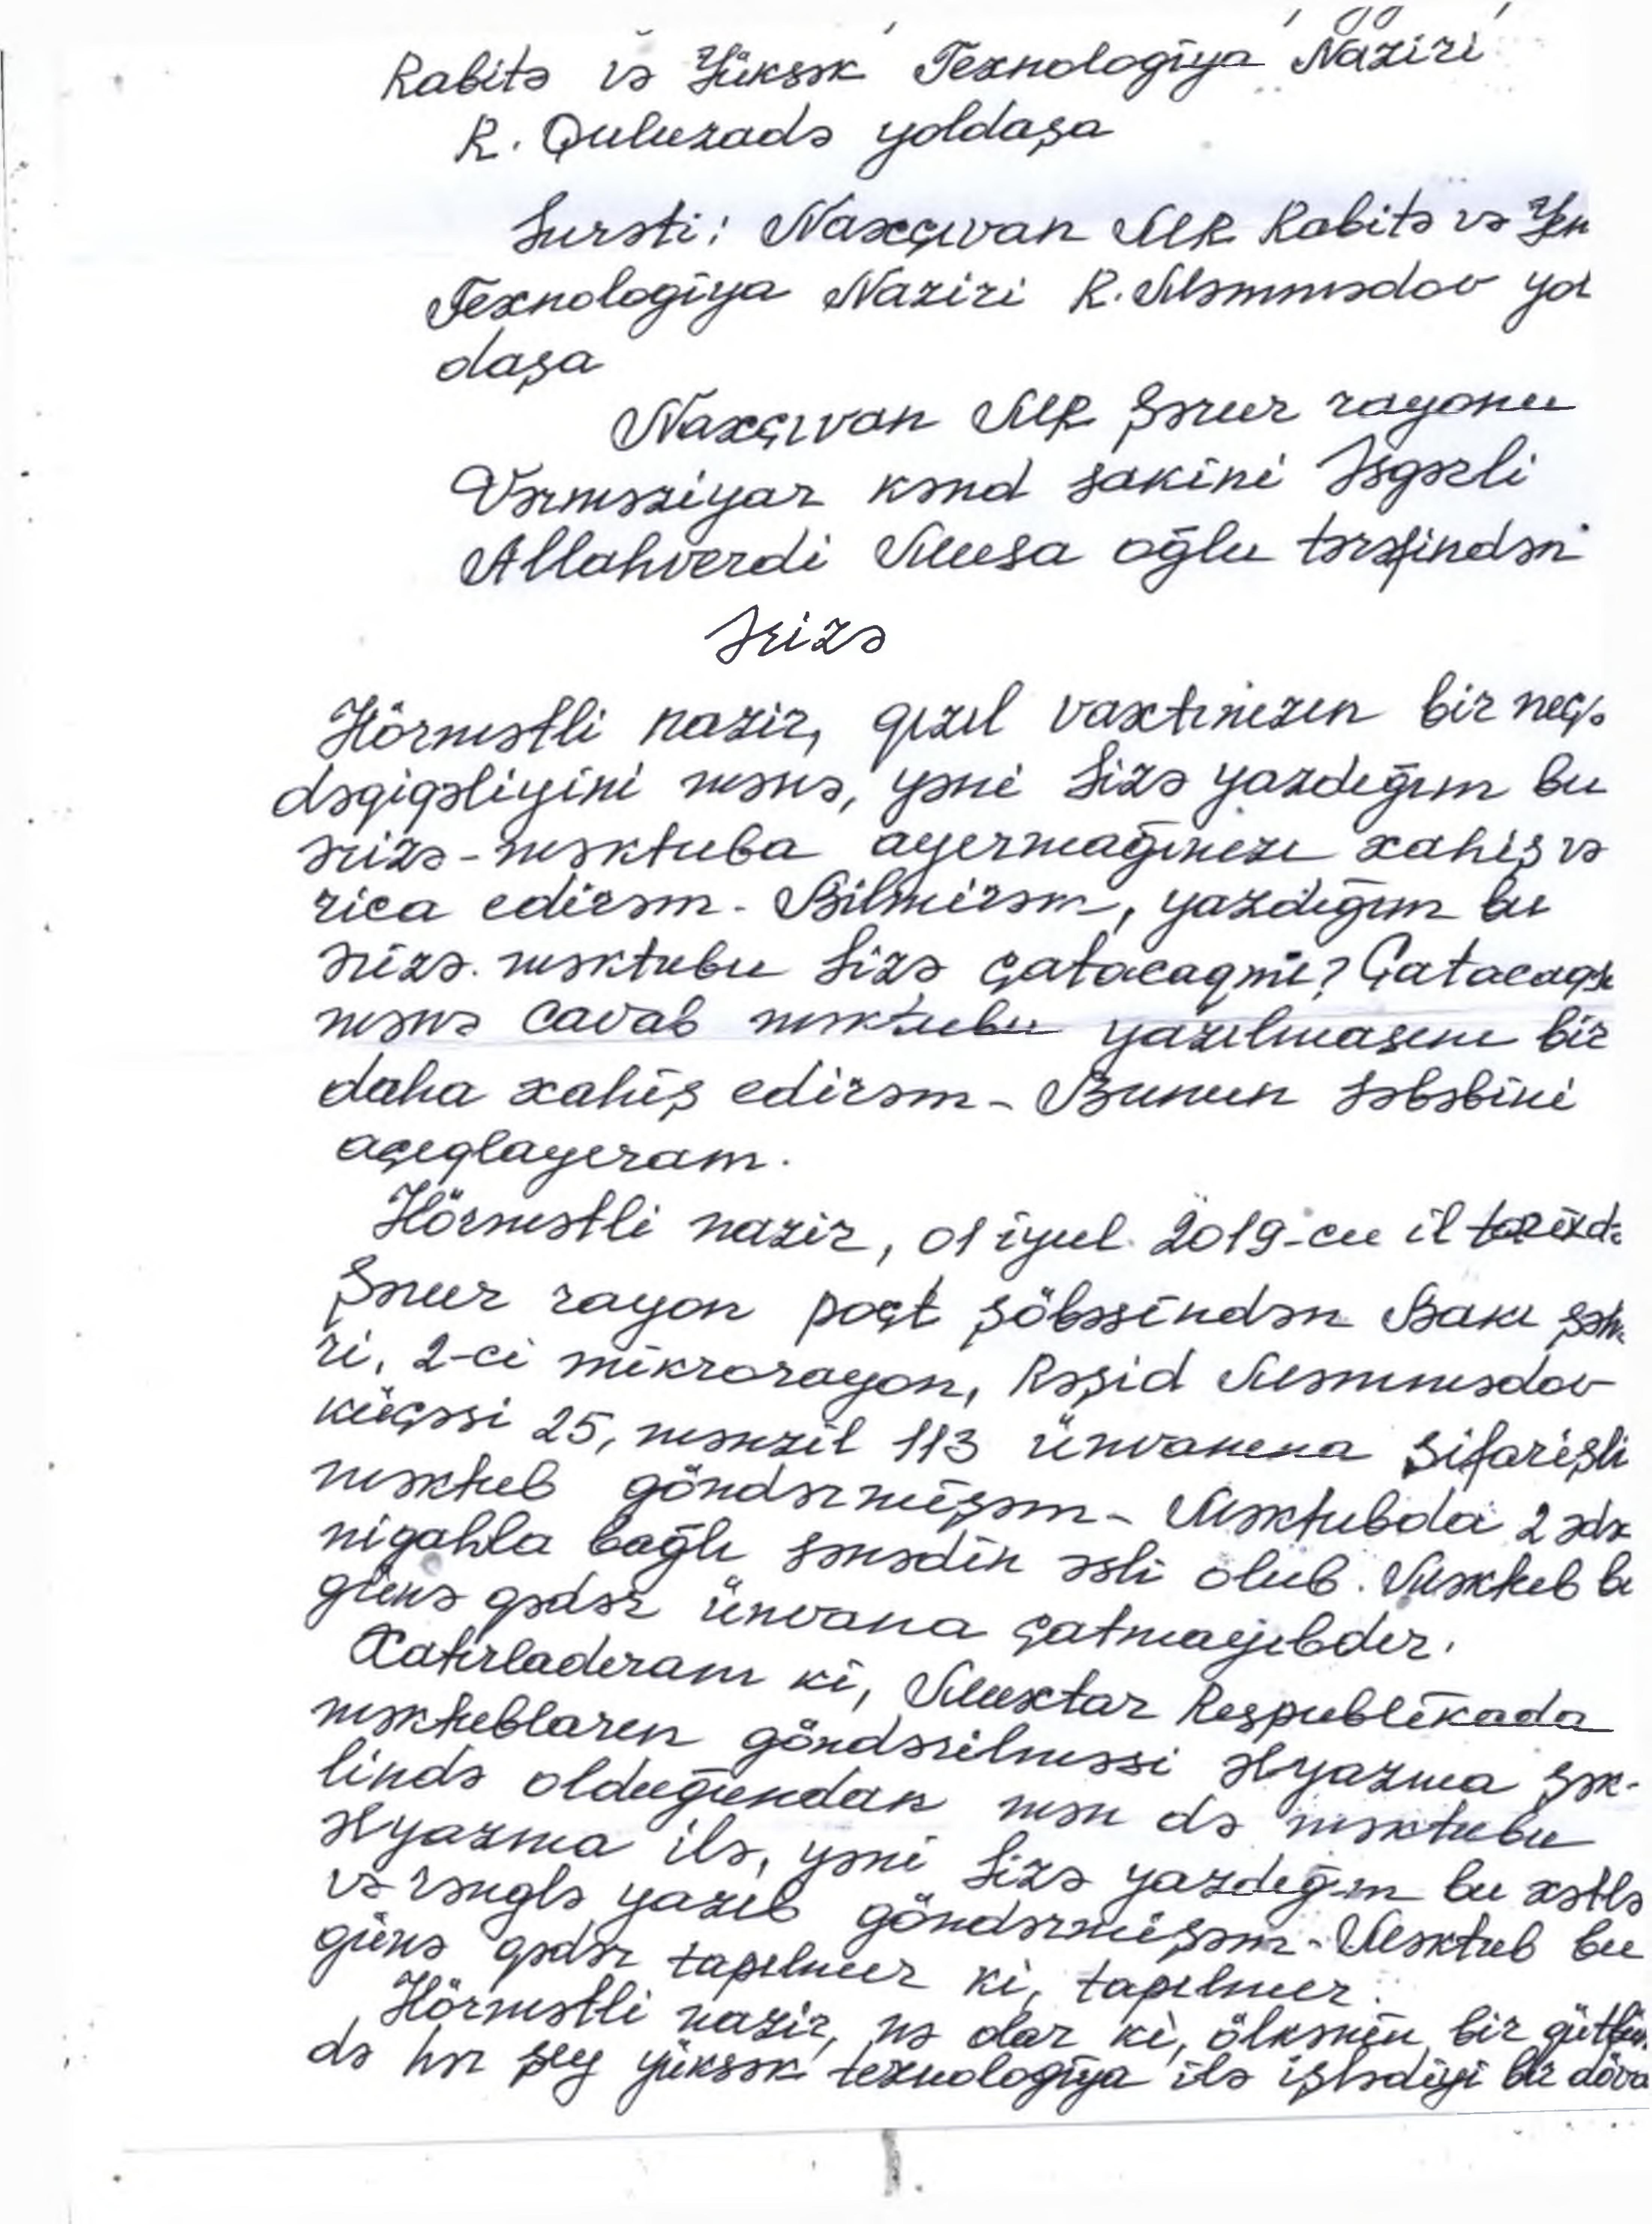 Rabitə və Yüksək Texnologiya Naziri
R. Quluzadə yoldaşa
Surəti: Naxçıvan MR Rabitə və Yen
Texnologiya Naziri R. Məmmədov yol
daşa
Naxçıvan MR Şərur rayonu
Vərməziyar kənd sakini Əsgərli
Allahverdi Musa oğlu tərəfindən
Ərizə
Hörmətli nazir, qızıl vaxtınızın bir neçə
dəqiqəliyini mənə, yəni Sizə yazdığım bu
ərizə-məktuba ayırmağınızı xahiş və
rica edirəm. Bilmirəm, yazdığım bu
ərizə-məktubu Sizə çatacaqmı? Çatacaqsa
mənə cavab məktubu yazılmasını bir
daha xahiş edirəm. Bunun səbəbini
açıqlayıram.
Hörmətli nazir, 01 iyul 2019-cu il tarixdə
Şərur rayon poçt şöbəsindən Bakı şəhə
ri, 2-ci mikrorayon, Rəşid Məmmədov
küçəsi 25, mənzil 113 ünvanına sifarişli
məktub göndərmişəm. Məktubda 2 ədəd
nigahla bağlı sənədin əsli olub. Məktub bu
günə qədər ünvana çatmayıbdır.
Xatırladıram ki, Muxtar Respublikada
məktubların göndərilməsi əlyazma şək-
lində olduğundan mən də məktubu
əlyazma ilə, yəni Sizə yazdığım bu xətlə
və rənglə yazıb göndərmişəm. Məktub bu
günə qədər tapılmır ki, tapılmır.
Hörmətli nazir, nə olar ki, ölkənin bir
də hər şey yüksək texnologiya ilə işlədiyi bir